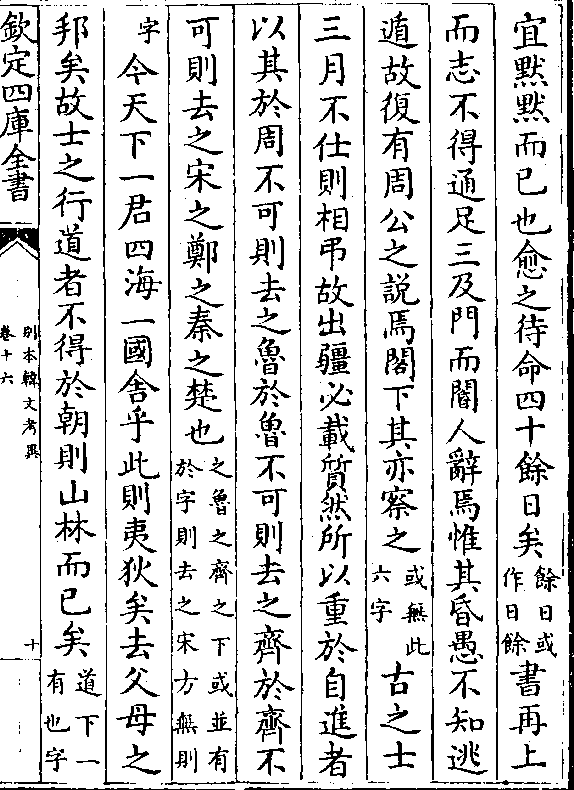 宜黙黙而已也愈之待命四十餘日矣餘日或作日餘書再上
而志不得通足三及門而閽人辭焉惟其昏愚不知逃
遁故復有周公之說焉閣下其亦察之或無此六字古之士
三月不仕則相弔故出疆必載質然所以重於自進者
以其於周不可則去之魯於魯不可則去之齊於齊不
可則去之宋之鄭之秦之楚也之魯之齊之下或並有於字則去之宋方無則
字今天下一君四海一國舍乎此則夷狄矣去父母之
邦矣故士之行道者不得於朝則山林而已矣道下一有也字
欽定四庫全書
別本韓文考異
卷十六
十